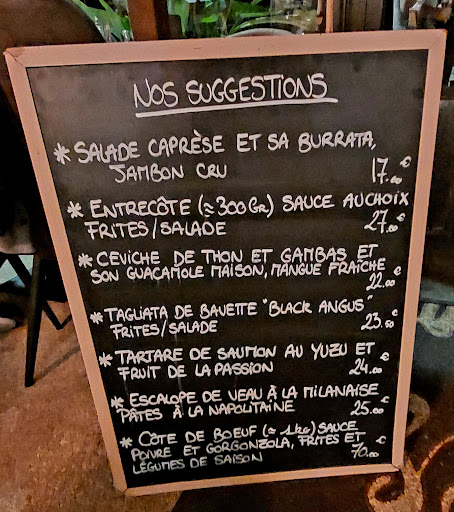 NOS SUGGESTIONS
* SALADE CAPRÈSE ET SA BURRATA,
JAMBON CRU 17.00 €
* ENTRECÔTE (≈300GR) SAUCE AU CHOIX
FRITES/SALADE 27.00 €
* CEVICHE DE THON ET GAMBAS ET
SON GUACAMOLE MAISON, MANGUE FRAÎCHE
22.00 €
* TAGLIATA DE BAVETTE "BLACK ANGUS"
FRITES/SALADE 23.50 €
* TARTARE DE SAUMON AU YUZU ET
FRUIT DE LA PASSION 24.00 €
* ESCALOPE DE VEAU À LA MILANAISE
PÂTES À LA NAPOLITAINE 25.00 €
* CÔTE DE BOEUF (≈ 1KG) SAUCE
POIVRE ET GORGONZOLA, FRITES ET
LÉGUMES DE SAISON 70.00 €